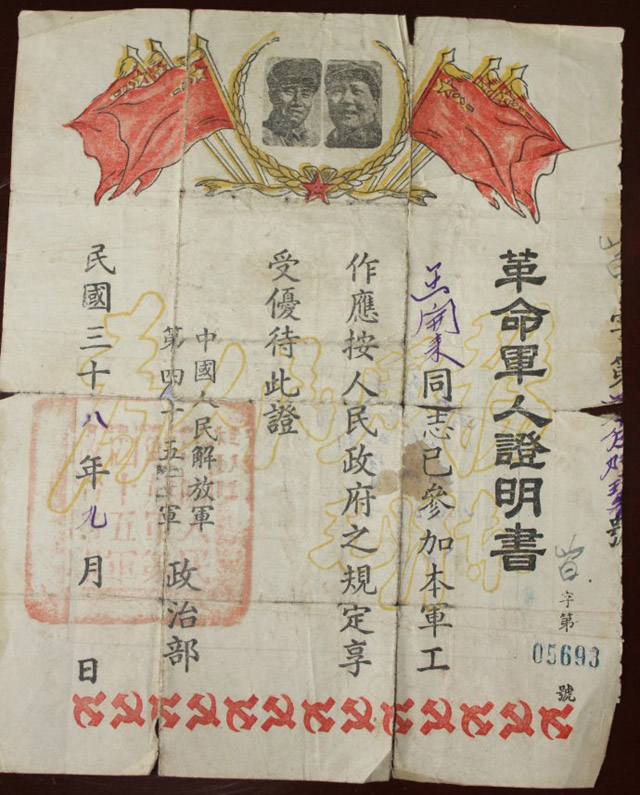 革命軍人證明書
字第
05693
號
開來同志已參加本軍工
作應按人民政府之規定享
受優待此證
中國人民解放軍
第四十五軍
政治部
民國三十八年九月 日